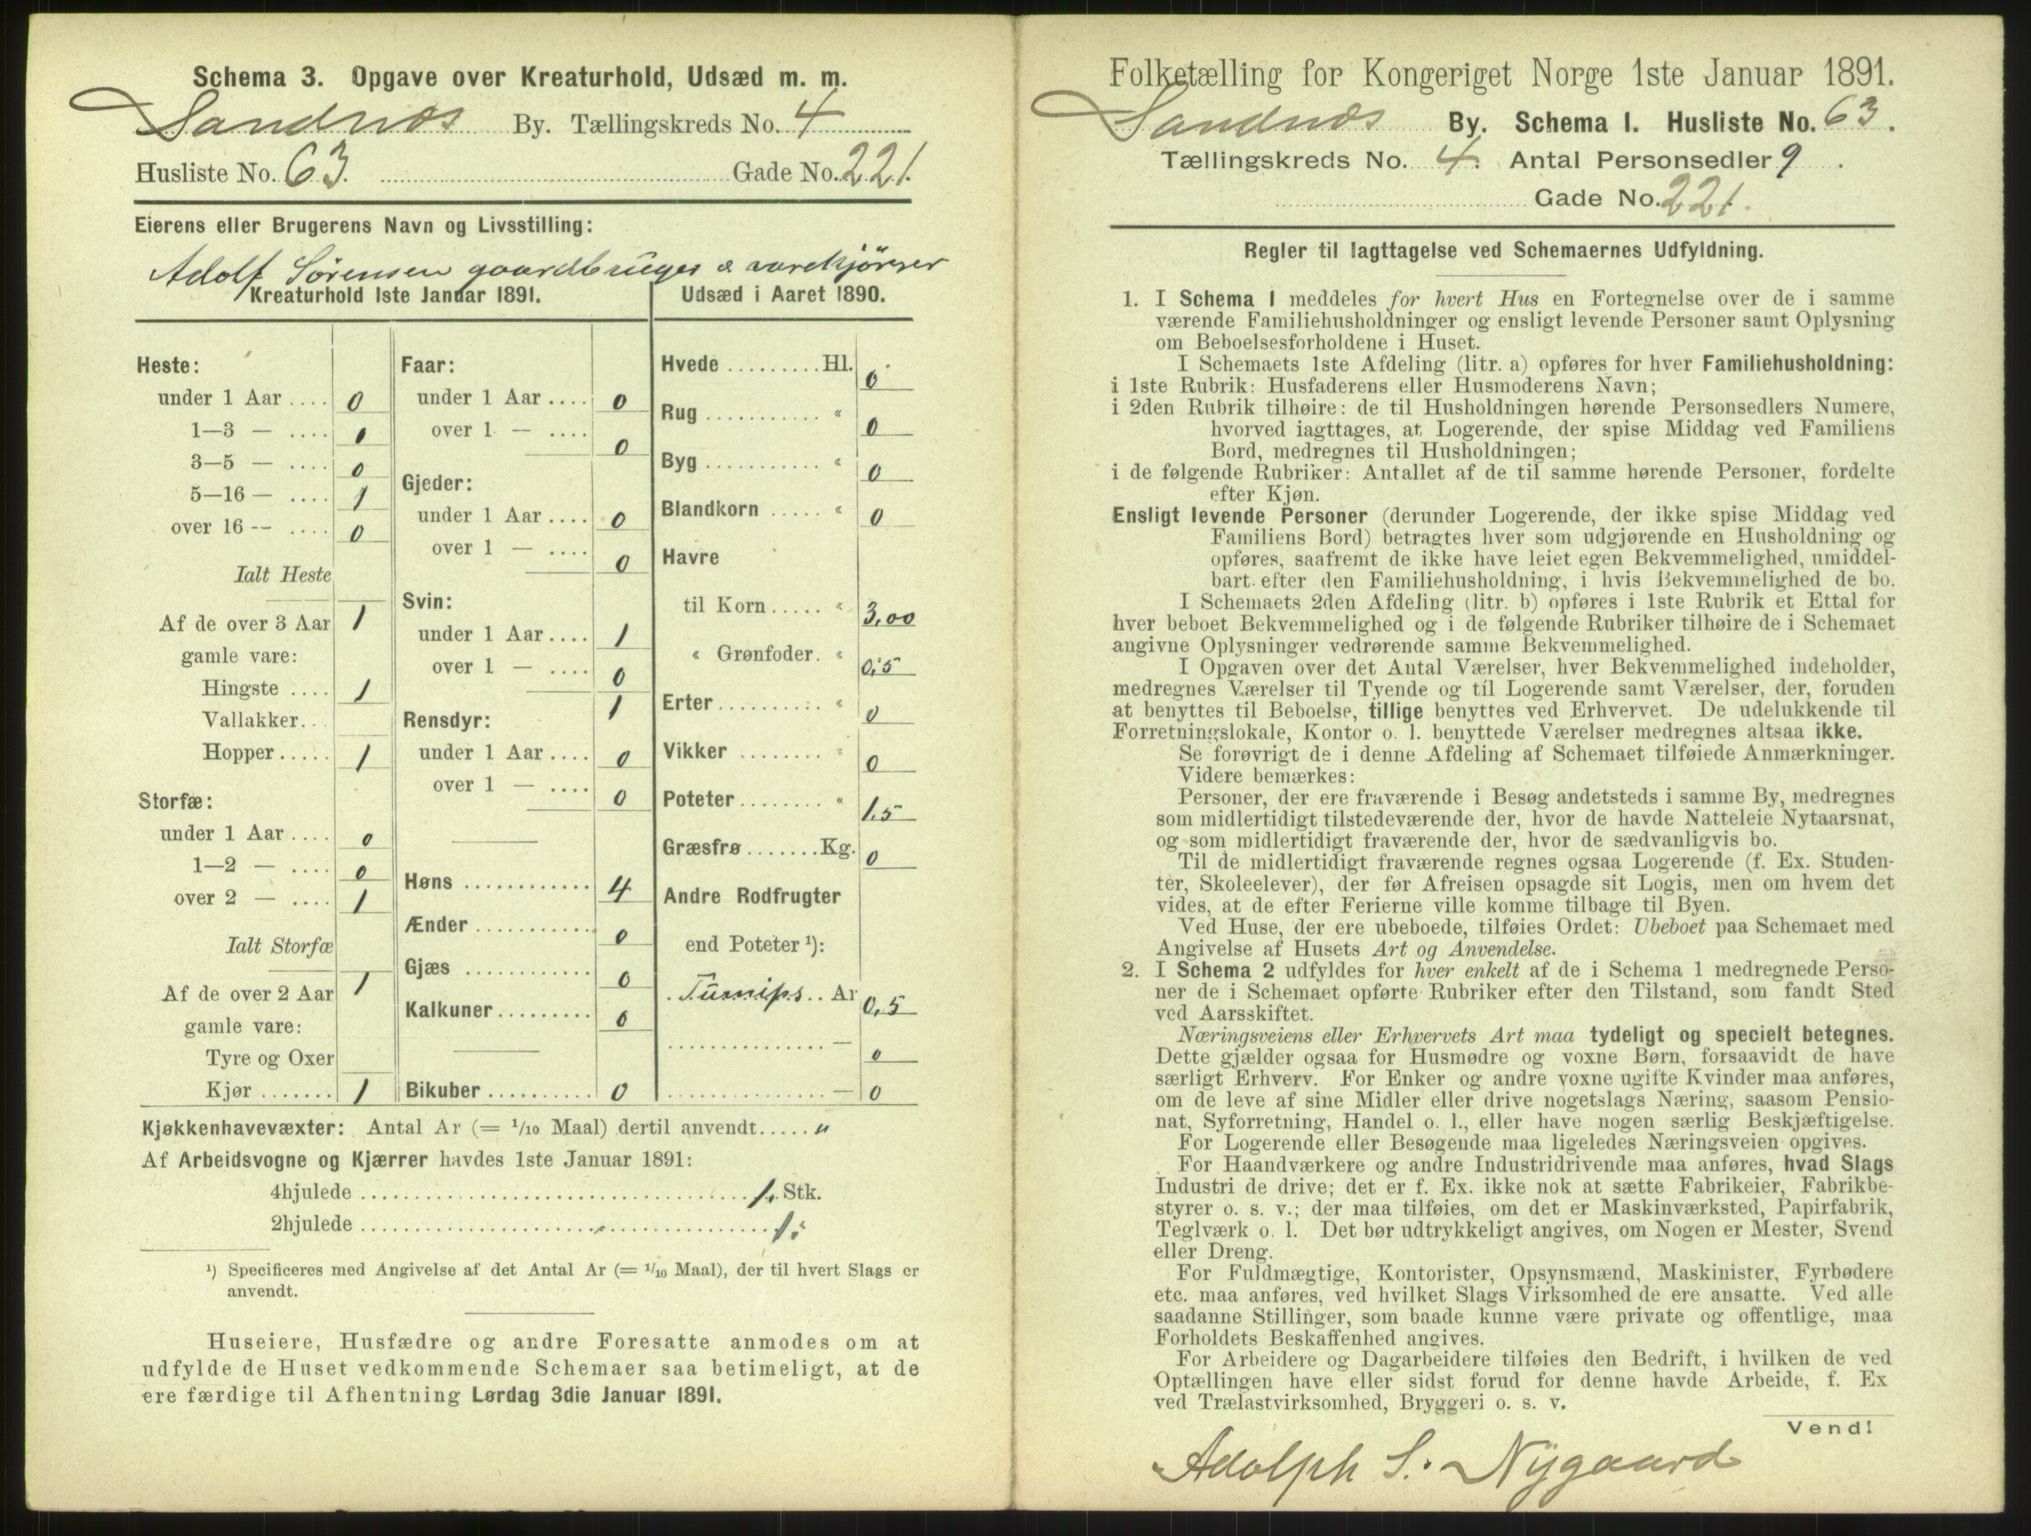 Schema 3. Opgave over Kreaturhold, Udsæd m. m.
Sandnæs By. Tællingskreds No. 4
Husliste No. 63. Gade No. 221.
Eierens eller Brugerens Navn og Livsstilling:
Adolf Sørensen gaardbruger & varekjører
Kreaturhold 1ste Januar 1891.
Heste:
under 1 Aar .... 0
1—3 — .... 0
3—5 — .... 0
5—16 — .... 1
over 16 -- .... 0
Ialt Heste 1
Af de over 3 Aar
gamle vare:
Hingste .... 1
Vallakker..
Hopper..... 1
Storfæ:
under 1 Aar .... 0
1—2 — .... 0
over 2 — .... 1
Ialt Storfæ 1
Af de over 2 Aar
gamle vare:
Tyre og Oxer
Kjør ....... 1
Faar:
under 1 Aar .... 0
over 1 — .... 0
Gjeder:
under 1 Aar .... 0
over 1 — .... 0
Svin:
under 1 Aar .... 1
over 1 — .... 0
1
Rensdyr:
under 1 Aar .... 0
over 1 — .... 0
Høns ............ 4
Ænder ........... 0
Gjæs ............ 0
Kalkuner ......... 0
Bikuber .......... 0
Udsæd i Aaret 1890.
Hvede ......... Hl. 0
Rug ........... “ 0
Byg ........... “ 0
Blandkorn ..... “ 0
Havre
til Korn ..... “ 3,00
“ Grønfoder. “ 0,5
Erter .......... “ 0
Vikker ........ “ 0
Poteter ........ “ 1,5
Græsfrø ....... Kg. 0
Andre Rodfrugter
end Poteter ¹):
Turnips .. Ar 0,5
............... — 0
............... — 0
Kjøkkenhavevæxter: Antal Ar (= 1/10 Maal) dertil anvendt ..... "
Af Arbeidsvogne og Kjærrer havdes 1ste Januar 1891:
4hjulede ........................................ 1. Stk.
2hjulede ........................................ 1. "
¹) Specificeres med Angivelse af det Antal Ar (= 1/10 Maal), der til hvert Slags er
anvendt.
Huseiere, Husfædre og andre Foresatte anmodes om at
udfylde de Huset vedkommende Schemaer saa betimeligt, at de
ere færdige til Afhentning Lørdag 3die Januar 1891.
Folketælling for Kongeriget Norge 1ste Januar 1891.
Sandnæs By. Schema I. Husliste No. 63.
Tællingskreds No. 4. Antal Personsedler 9.
Gade No. 221.
Regler til Iagttagelse ved Schemaernes Udfyldning.
1. I Schema 1 meddeles for hvert Hus en Fortegnelse over de i samme
værende Familiehusholdninger og ensligt levende Personer samt Oplysning
om Beboelsesforholdene i Huset.
I Schemaets 1ste Afdeling (litr. a) opføres for hver Familiehusholdning:
i 1ste Rubrik: Husfaderens eller Husmoderens Navn;
i 2den Rubrik tilhøire: de til Husholdningen hørende Personsedlers Numere,
hvorved iagttages, at Logerende, der spise Middag ved Familiens
Bord, medregnes til Husholdningen;
i de følgende Rubriker: Antallet af de til samme hørende Personer, fordelte
efter Kjøn.
Ensligt levende Personer (derunder Logerende, der ikke spise Middag ved
Familiens Bord) betragtes hver som udgjørende en Husholdning og
opføres, saafremt de ikke have leiet egen Bekvemmelighed, umiddel-
bart efter den Familiehusholdning, i hvis Bekvemmelighed de bo.
I Schemaets 2den Afdeling (litr. b) opføres i 1ste Rubrik et Ettal for
hver beboet Bekvemmelighed og i de følgende Rubriker tilhøire de i Schemaet
angivne Oplysninger vedrørende samme Bekvemmelighed.
I Opgaven over det Antal Værelser, hver Bekvemmelighed indeholder,
medregnes Værelser til Tyende og til Logerende samt Værelser, der, foruden
at benyttes til Beboelse, tillige benyttes ved Erhvervet. De udelukkende til
Forretningslokale, Kontor o. l. benyttede Værelser medregnes altsaa ikke.
Se forøvrigt de i denne Afdeling af Schemaet tilføiede Anmærkninger.
Videre bemærkes:
Personer, der ere fraværende i Besøg andetsteds i samme By, medregnes
som midlertidigt tilstedeværende der, hvor de havde Natteleie Nytaarsnat,
og som midlertidigt fraværende der, hvor de sædvanligvis bo.
Til de midlertidigt fraværende regnes ogsaa Logerende (f. Ex. Studen-
ter, Skoleelever), der før Afreisen opsagde sit Logis, men om hvem det
vides, at de efter Ferierne ville komme tilbage til Byen.
Ved Huse, der ere ubeboede, tilføies Ordet: Ubeboet paa Schemaet med
Angivelse af Husets Art og Anvendelse.
2. I Schema 2 udfyldes for hver enkelt af de i Schema 1 medregnede Perso-
ner de i Schemaet opførte Rubriker efter den Tilstand, som fandt Sted
ved Aarsskiftet.
Næringsveiens eller Erhvervets Art maa tydeligt og specielt betegnes.
Dette gjælder ogsaa for Husmødre og voxne Børn, forsaavidt de have
særligt Erhverv. For Enker og andre voxne ugifte Kvinder maa anføres,
om de leve af sine Midler eller drive nogetslags Næring, saasom Pensio-
nat, Syforretning, Handel o. l., eller have nogen særlig Beskjæftigelse.
For Logerende eller Besøgende maa ligeledes Næringsveien opgives.
For Haandværkere og andre Industridrivende maa anføres, hvad Slags
Industri de drive; det er f. Ex. ikke nok at sætte Fabrikeier, Fabrikbe-
styrer o. s. v.; der maa tilføies, om det er Maskinværksted, Papirfabrik,
Teglværk o. l. Det bør udtrykkeligt angives, om Nogen er Mester, Svend
eller Dreng.
For Fuldmægtige, Kontorister, Opsynsmænd, Maskinister, Fyrbødere
etc. maa anføres, ved hvilket Slags Virksomhed de ere ansatte. Ved alle
saadanne Stillinger, som baade kunne være private og offentlige, maa
Forholdets Beskaffenhed angives.
For Arbeidere og Dagarbeidere tilføies den Bedrift, i hvilken de ved
Optællingen have eller sidst forud for denne havde Arbeide, f. Ex
ved Trælastvirksomhed, Bryggeri o. s. v.
Vend!
Adolph S. Nygaard